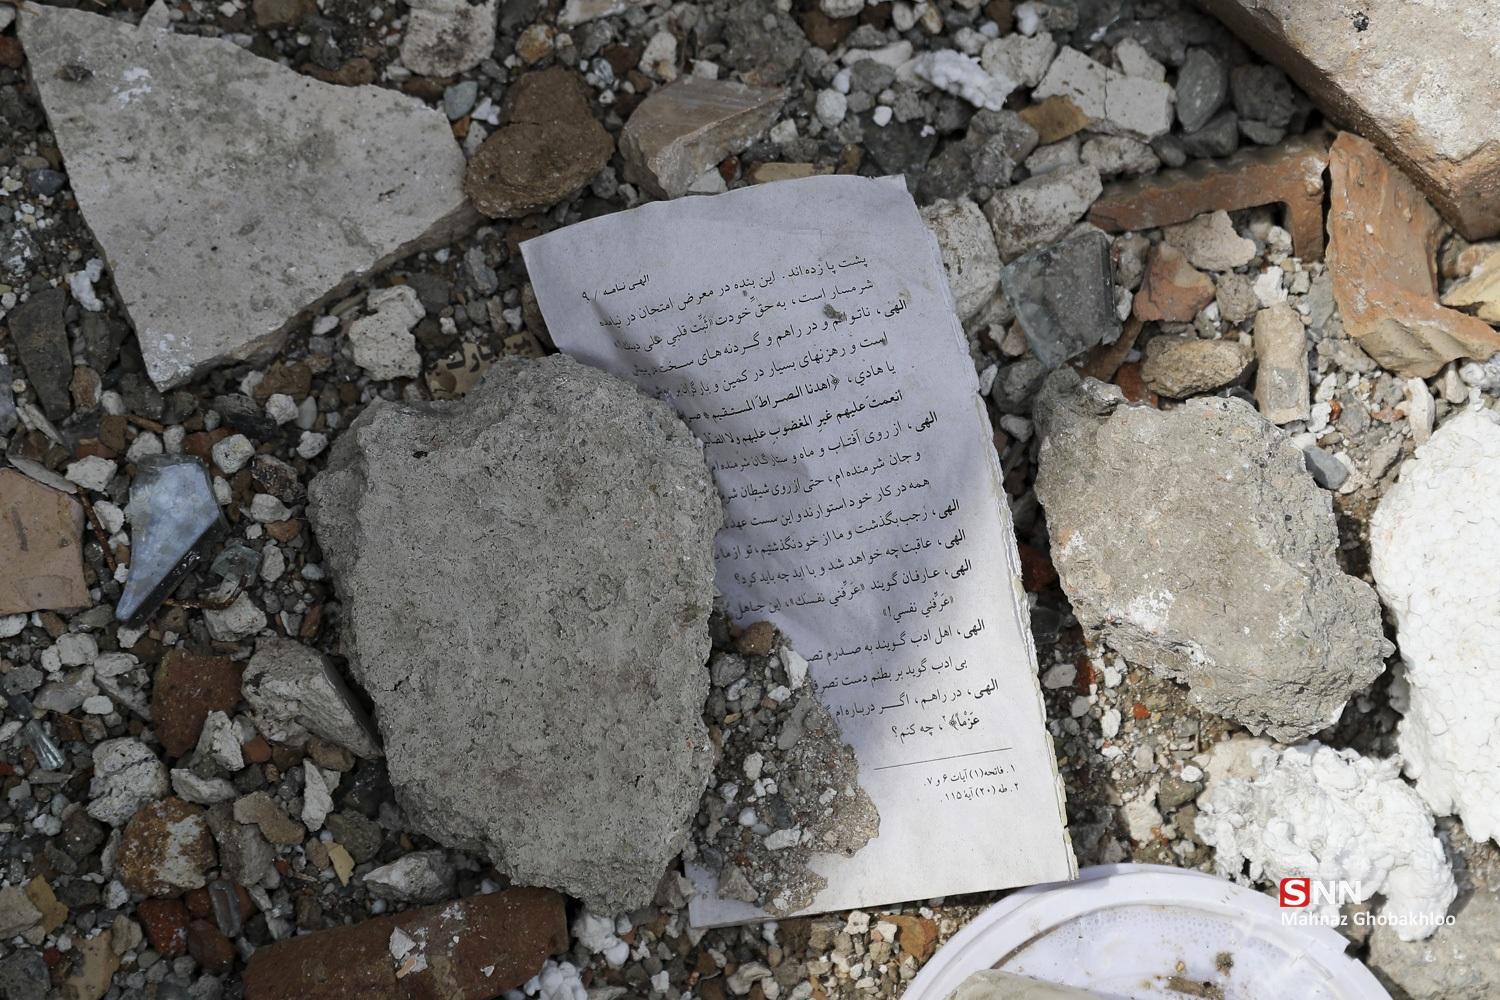 الهی نامه / ۹
پشت پا زده‌اند. این بنده در معرض امتحان در نیامده
شرمسار است، به حقّ خودت «ثَبِّت قلبي علی دینك»
الهی، ناتوانم و در راهم و گردنه‌های سخت در پیش
است و رهزنهای بسیار در کمین و بار گران بر
یا هادي، ﴿اهدنا الصراطَ المستقیم * صر
أنعمتَ علیهم غیرِ المغضوب علیهم ولا الضا
الهی، از روی آفتاب و ماه و ستارگان شرمنده‌ام
و جان شرمنده‌ام، حتی از روی شیطان شر
همه در کار خود استوارند و این سست عهد
الهی، رجب بگذشت و ما از خود نگذشتیم، تو از ما
الهی، عاقبت چه خواهد شد و با ابد چه باید کرد؟
الهی، عارفان گویند «عَرِّفني نفسك»، این جاهل
«عَرِّفني نفسي!»
الهی، اهل ادب گویند به صدرم تصر
بی ادب گوید بر بطنم دست تصرف
الهی، در راهم، اگر درباره‌ام
عَزْماً﴾۲، چه کنم؟
۱. فاتحه(۱) آیات ۶ و ۷.
۲. طه (۲۰) آیهٔ ۱۱۵.
SNN
Mahnaz Ghobakhloo